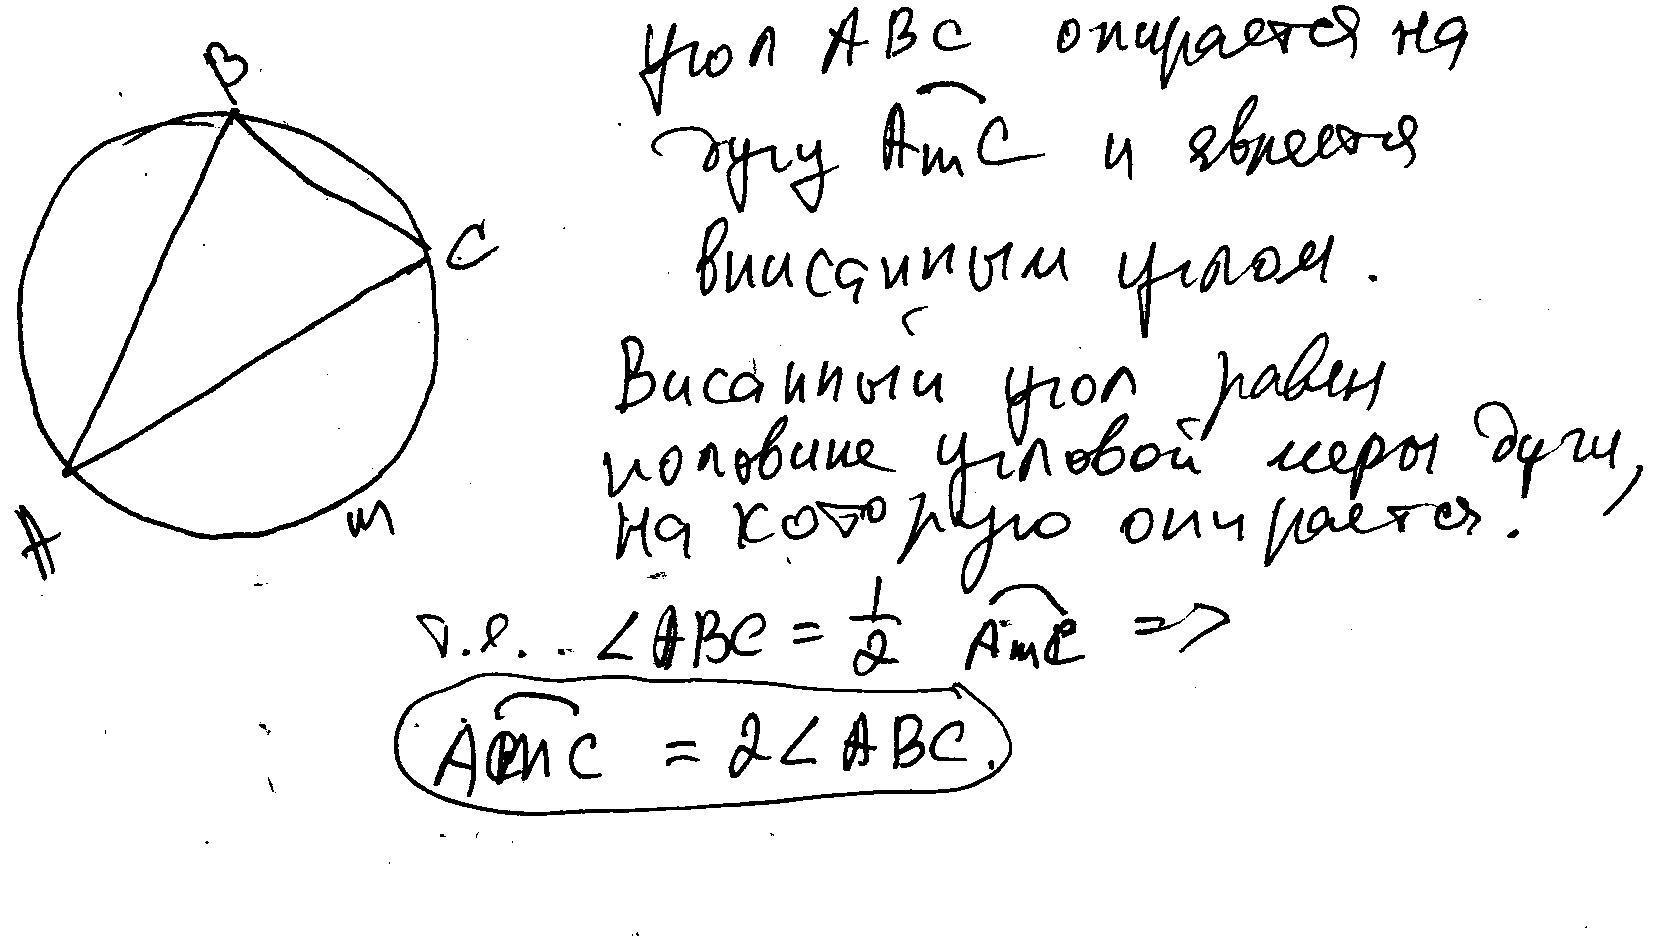 B
C
A
m
Угол ABC опирается на
дугу AmC и явяется
вписанным углом.
Висанный угол равен
половине угловой меры дуги,
на которую опирается.
т.е... ∠ABC = 1/2 AmC =>
AmC = 2∠ABC.